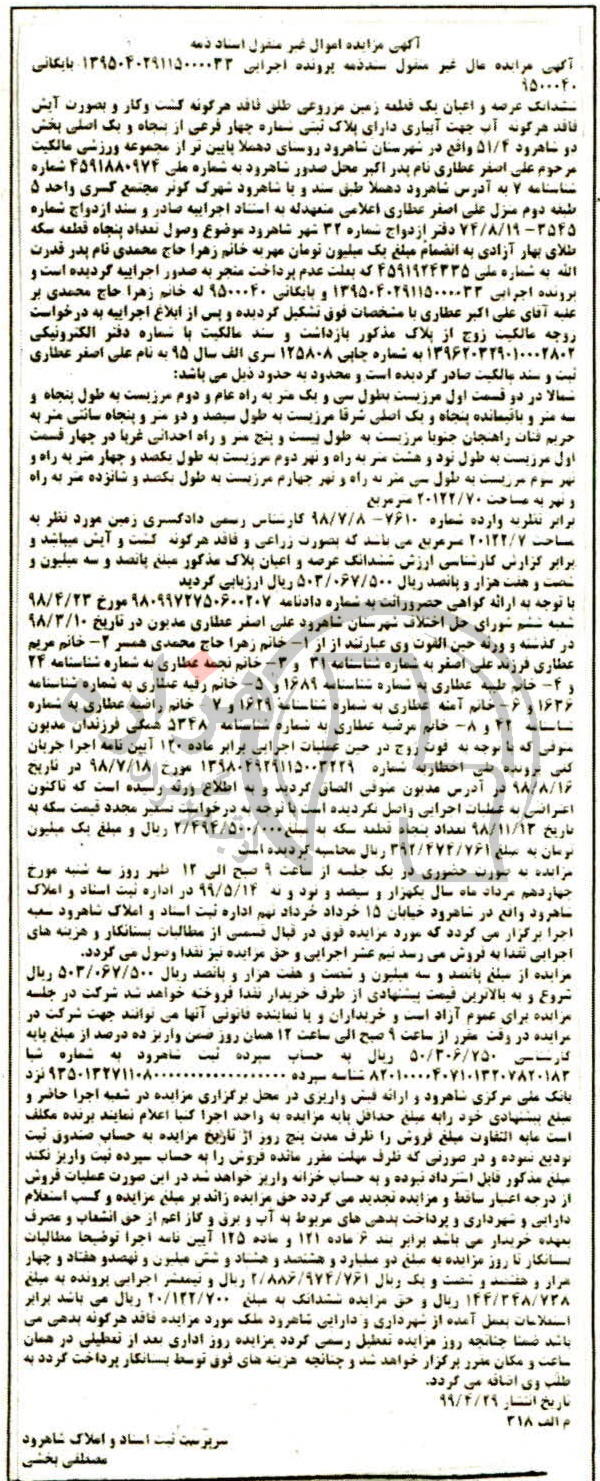 آگهی مزایده اموال غیر منقول اسناد ذمه
آگهی مزایده مال غیر منقول سندذمه پرونده اجرایی ۱۳۹۵۰۴۰۲۹۱۱۵۰۰۰۰۳۳ بایگانی
۹۵۰۰۰۴۰
ششدانگ عرصه و اعیان یک قطعه زمین مزروعی طلق فاقد هرگونه کشت وکار و بصورت آیش
فاقد هرگونه آب جهت آبیاری دارای پلاک ثبتی شماره چهار فرعی از پنجاه و یک اصلی بخش
دو شاهرود ۵۱/۴ واقع در شهرستان شاهرود روستای دهملا پایین تر از مجموعه ورزشی مالکیت
مرحوم علی اصغر عطاری نام پدر اکبر محل صدور شاهرود به شماره ملی ۴۵۹۱۸۸۰۹۷۴ شماره
شناسنامه ۷ به آدرس شاهرود دهملا طبق سند و یا شاهرود شهرک کوثر مجتمع کسری واحد ۵
طبقه دوم منزل علی اصغر عطاری اعلامی متعهدله به استناد اجراییه صادر و سند ازدواج شماره
۳۵۴۵- ۷۴/۸/۱۹ دفتر ازدواج شماره ۳۲ شهر شاهرود موضوع وصول تعداد پنجاه قطعه سکه
طلای بهار آزادی به انضمام مبلغ یک میلیون تومان مهریه خانم زهرا حاج محمدی نام پدر قدرت
الله به شماره ملی ۴۵۹۱۹۲۴۳۳۵ که بعلت عدم پرداخت منجر به صدور اجراییه گردیده است و
پرونده اجرایی ۱۳۹۵۰۴۰۲۹۱۱۵۰۰۰۰۳۳ و بایگانی ۹۵۰۰۰۴۰ له خانم زهرا حاج محمدی بر
علیه آقای علی اکبر عطاری با مشخصات فوق تشکیل گردیده و پس از ابلاغ اجراییه به درخواست
زوجه مالکیت زوج از پلاک مذکور بازداشت و سند مالکیت با شماره دفتر الکترونیکی
۱۳۹۶۲۰۳۲۹۰۱۰۰۰۲۸۰۲ به شماره چاپی ۱۲۵۸۰۸ سری الف سال ۹۵ به نام علی اصغر عطاری
ثبت و سند مالکیت صادر گردیده است و محدود به حدود ذیل می باشد:
شمالا در دو قسمت اول مرزیست بطول سی و یک متر به راه عام و دوم مرزیست به طول پنجاه و
سه متر و باقیمانده پنجاه و یک اصلی شرقا مرزیست به طول سیصد و دو متر و پنجاه سانتی متر به
حریم قنات راهنجان جنوبا مرزیست به طول بیست و پنج متر و راه احداثی غربا در چهار قسمت
اول مرزیست به طول نود و هشت متر به راه و نهر دوم مرزیست به طول یکصد و چهار متر به راه و
نهر سوم مرزیست به طول سی متر به راه و نهر چهارم مرزیست به طول یکصد و شانزده متر به راه
و نهر به مساحت ۲۰۱۲۲/۷۰ مترمربع
برابر نظریه وارده شماره ۷۶۱۰- ۹۸/۷/۸ کارشناس رسمی دادگستری زمین مورد نظر به
مساحت ۲۰۱۲۲/۷ مترمربع می باشد که بصورت زراعی و فاقد هرگونه کشت و آیش میباشد و
برابر گزارش کارشناسی ارزش ششدانگ عرصه و اعیان پلاک مذکور مبلغ پانصد و سه میلیون و
شصت و هفت هزار و پانصد ریال ۵۰۳/۰۶۷/۵۰۰ ریال ارزیابی گردید
با توجه به ارائه گواهی حصروراثت به شماره دادنامه ۹۸۰۹۹۷۲۷۵۰۶۰۰۲۰۷ مورخ ۹۸/۴/۲۳
شعبه ششم شورای حل اختلاف شهرستان شاهرود علی اصغر عطاری مدیون در تاریخ ۹۸/۳/۱۰
در گذشته و ورثه حین الفوت وی عبارتند از از ۱- خانم زهرا حاج محمدی همسر ۲- خانم مریم
عطاری فرزند علی اصغر به شماره شناسنامه ۳۱ و ۳- خانم نجمه عطاری به شماره شناسنامه ۲۴
و ۴- خانم طیبه عطاری به شماره شناسنامه ۱۶۸۹ و ۵- خانم رقیه عطاری به شماره شناسنامه
۱۶۳۶ و ۶- خانم آمنه عطاری به شماره شناسنامه ۱۶۲۹ و ۷- خانم راضیه عطاری به شماره
شناسنامه ۴۲ و ۸- خانم مرضیه عطاری به شماره شناسنامه ۵۳۴۸ همگی فرزندان مدیون
متوفی که با توجه به فوت زوج در حین عملیات اجرایی برابر ماده ۱۲۰ آیین نامه اجرا جریان
کلی پرونده طی اخطاریه شماره ۱۳۹۸۰۴۹۲۹۱۱۵۰۰۳۲۲۹ مورخ ۹۸/۷/۱۸ در تاریخ
۹۸/۸/۱۶ در آدرس مدیون متوفی الصاق گردید و به اطلاع ورثه رسیده است که تاکنون
اعتراضی به عملیات اجرایی واصل نگردیده است با توجه به درخواست تسعیر مجدد قیمت سکه به
تاریخ ۹۸/۱۱/۱۳ تعداد پنجاه قطعه سکه به مبلغ ۲/۴۹۴/۵۰۰/۰۰۰ ریال و مبلغ یک میلیون
تومان به مبلغ ۳۹۲/۴۷۴/۷۶۱ ریال محاسبه گردیده است
مزایده به صورت حضوری در یک جلسه از ساعت ۹ صبح الی ۱۲ ظهر روز سه شنبه مورخ
چهاردهم مرداد ماه سال یکهزار و سیصد و نود و نه ۹۹/۵/۱۴ در اداره ثبت اسناد و املاک
شاهرود واقع در شاهرود خیابان ۱۵ خرداد خرداد نهم اداره ثبت اسناد و املاک شاهرود شعبه
اجرا برگزار می گردد که مورد مزایده فوق در قبال قسمتی از مطالبات بستانکار و هزینه های
اجرایی نقدا به فروش می رسد نیم عشر اجرایی و حق مزایده نیز نقدا وصول می گردد.
مزایده از مبلغ پانصد و سه میلیون و شصت و هفت هزار و پانصد ریال ۵۰۳/۰۶۷/۵۰۰ ریال
شروع و به بالاترین قیمت پیشنهادی از طرف خریدار نقدا فروخته خواهد شد شرکت در جلسه
مزایده برای عموم آزاد است و خریداران و یا نماینده قانونی آنها می توانند جهت شرکت در
مزایده در وقت مقرر از ساعت ۹ صبح الی ساعت ۱۲ همان روز ضمن واریز ده درصد از مبلغ پایه
کارشناسی ۵۰/۳۰۶/۷۵۰ ریال به حساب سپرده ثبت شاهرود به شماره شبا
۸۲۰۱۰۰۰۰۴۰۷۱۰۱۳۲۰۷۸۲۰۱۸۳ شناسه سپرده نزد
بانک ملی مرکزی شاهرود و ارائه فیش واریزی در محل برگزاری مزایده در شعبه اجرا حاضر و
مبلغ پیشنهادی خود رابه مبلغ حداقل پایه مزایده به واحد اجرا کتبا اعلام نمایند برنده مکلف
است مابه التفاوت مبلغ فروش را ظرف مدت پنج روز از تاریخ مزایده به حساب صندوق ثبت
تودیع نموده و در صورتی که ظرف مهلت مقرر مانده فروش را به حساب سپرده ثبت واریز نکند
مبلغ مذکور قابل استرداد نبوده و به حساب خزانه واریز خواهد شد در این صورت عملیات فروش
از درجه اعتبار ساقط و مزایده تجدید می گردد حق مزایده زائد بر مبلغ مزایده و کسب استعلام
دارایی و شهرداری و پرداخت بدهی های مربوط به آب و برق و گاز اعم از حق انشعاب و مصرف
بعهده خریدار می باشد برابر بند ۶ ماده ۱۲۱ و ماده ۱۲۵ آیین نامه اجرا توضیحا مطالبات
بستانکار تا روز مزایده به مبلغ دو میلیارد و هشتصد و هشتاد و شش میلیون و نهصدو هفتاد و چهار
هزار و هفتصد و شصت و یک ریال ۲/۸۸۶/۹۷۴/۷۶۱ ریال و نیمعشر اجرایی پرونده به مبلغ
۱۴۴/۳۴۸/۷۳۸ ریال و حق مزایده ششدانگ به مبلغ ۲۰/۱۲۲/۷۰۰ ریال می باشد برابر
استعلامات بعمل آمده از شهرداری و دارایی شاهرود ملک مورد مزایده فاقد هرگونه بدهی می
باشد ضمنا چنانچه روز مزایده تعطیل رسمی گردد مزایده روز اداری بعد از تعطیلی در همان
ساعت و مکان مقرر برگزار خواهد شد و چنانچه هزینه های فوق توسط بستانکار پرداخت گردد به
طلب وی اضافه می گردد.
تاریخ انتشار ۹۹/۴/۲۹
م الف ۳۱۸
سرپرست ثبت اسناد و املاک شاهرود
مصطفی بخشی